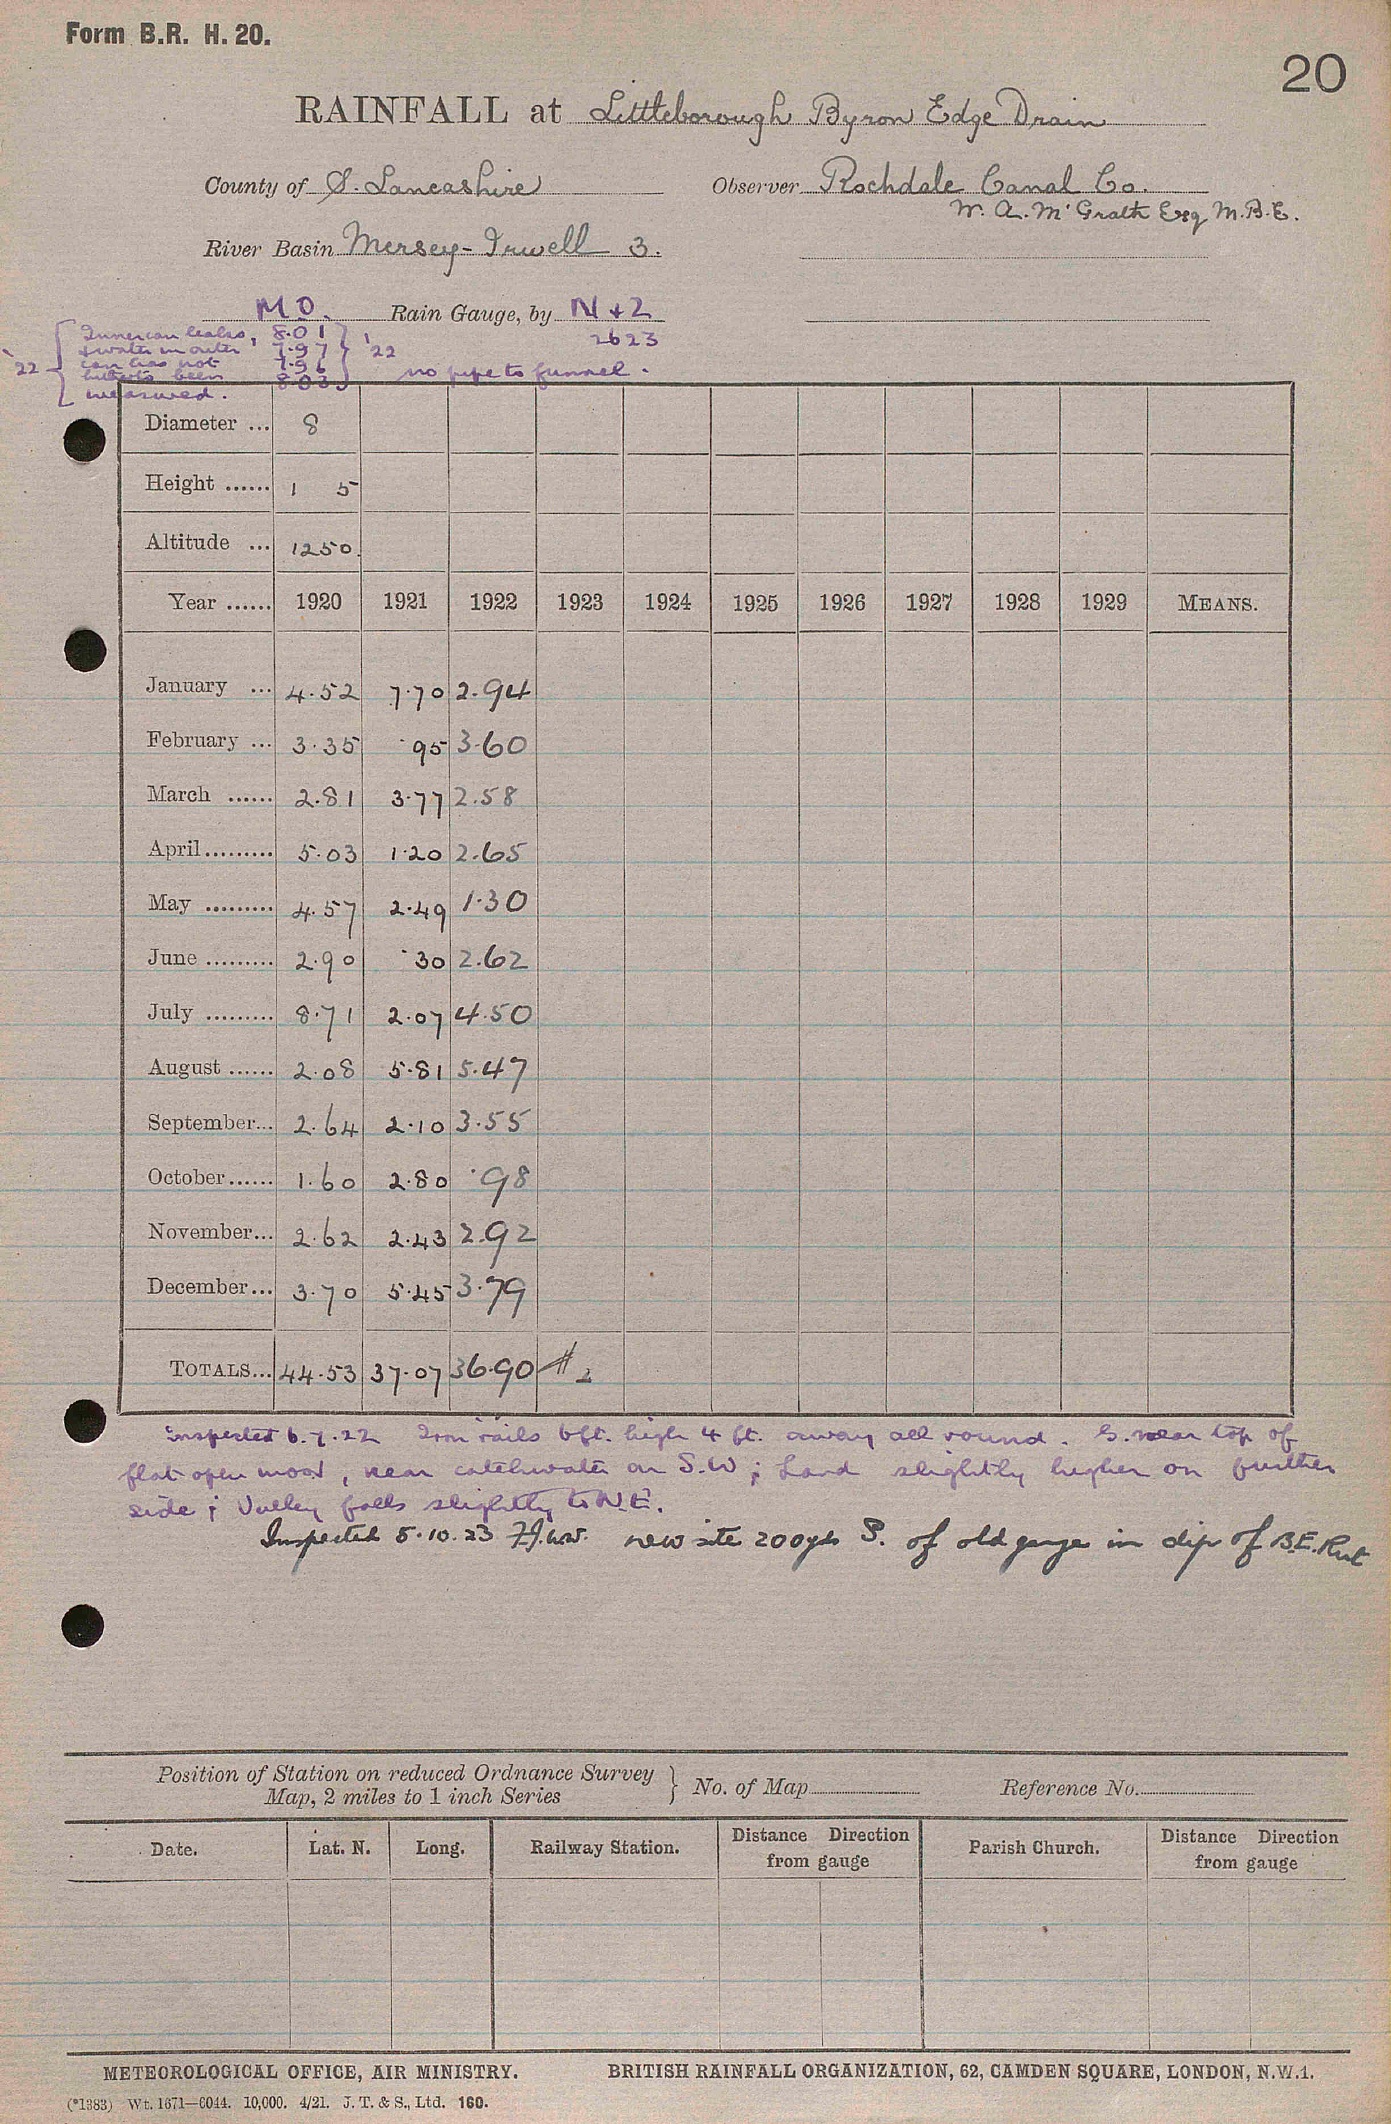 Form B.R. H. 20.
20
RAINFALL at Littleborough Byron Edge Drain
County of S. Lancashire Observer Rochdale Canal Co.
W. A. McGrath Esq M.B.E.
River Basin Mersey-Irwell 3.
M O. Rain Gauge, by N & Z
2623
'22 { Inner can leaks, 8.01 } '22
& water in outer 7.97
can has not 7.96
hitherto been 8.03
measured.
no pipe to funnel.
Diameter ... 8
Height ...... 1 5
Altitude ... 1250.
Year ...... 1920 1921 1922 1923 1924 1925 1926 1927 1928 1929 MEANS.
January ... 4.52 7.70 2.94
February ... 3.35 .95 3.60
March ...... 2.81 3.77 2.58
April ......... 5.03 1.20 2.65
May ......... 4.57 2.49 1.30
June ......... 2.90 .30 2.62
July ......... 8.71 2.07 4.50
August ...... 2.08 5.81 5.47
September... 2.64 2.10 3.55
October...... 1.60 2.80 .98
November... 2.62 2.43 2.92
December... 3.70 5.45 3.79
TOTALS... 44.53 37.07 36.90 # 2
Inspected 6.7.22 Iron rails 6ft. high 4 ft. away all round. G. near top of
flat open moor, near catchwater on S.W; Land slightly higher on further
side; Valley falls slightly to N.E.
Inspected 5.10.23 new site 200yds S. of old gauge in dip of B.E.
Position of Station on reduced Ordnance Survey
Map, 2 miles to 1 inch Series } No. of Map Reference No.
Date. Lat. N. Long. Railway Station. Distance Direction from gauge Parish Church. Distance Direction from gauge
METEOROLOGICAL OFFICE, AIR MINISTRY. BRITISH RAINFALL ORGANIZATION, 62, CAMDEN SQUARE, LONDON, N.W.1.
(*1383) Wt. 1671—6044. 10,000. 4/21. J. T. & S., Ltd. 160.